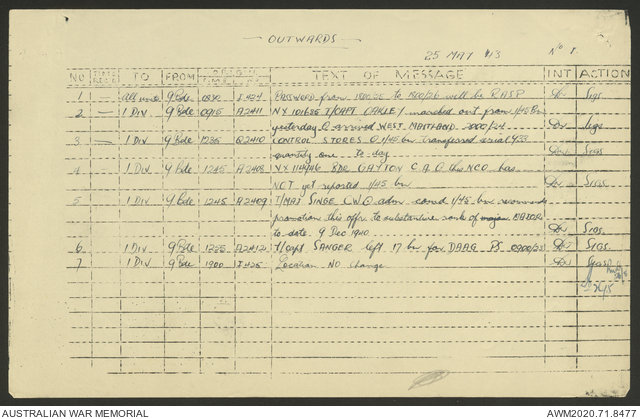 OUTWARDS
25 MAY 43 No 1.
NO TIME RECD TO FROM ORIGIN TIME No TEXT OF MESSAGE INT ACTION
1 — All units 9 Bde 0830 I424 Password from to will be RASP Sigs
2 — 1 DIV 9 Bde 0915 A2411 NX T/CAPT OAKLEY marched out from 1/45 Bn
yesterday & arrived WEST MAITLAND 2000/24 Sigs
3 — 1 DIV 9 Bde 1235 Q2410 CONTROL STORES Q 1/45 bn transferred serial 433
quantity one to day Sigs
4 1 DIV 9 Bde 1245 A2408 NX BDR GAYTON C.A.G this NCO has
NOT yet reported 1/45 bn Sigs
5 1 DIV 9 Bde 1245 A2409 T/MAJ SINGE C.W.O comd 1/45 bn recommends
promotion this offr to substantive rank of major
to date 9 Dec 1940 Sigs
6 1 DIV 9 Bde 1255 A2412 T/Capt SANGER left 17 bn for DAAG PS Sigs
7 1 DIV 9 Bde 1900 I425 Location NO change
AUSTRALIAN WAR MEMORIAL AWM2020.71.8477